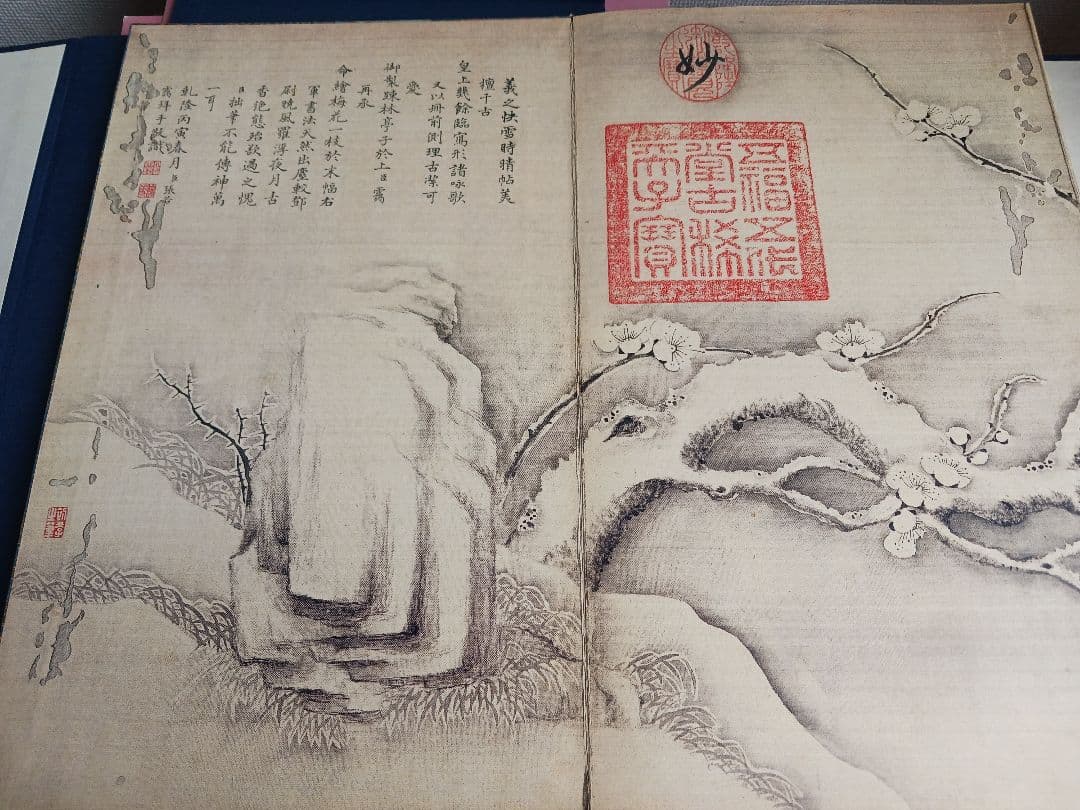 妙
五福五代
堂古稀
天子寶
羲之快雪時晴帖美
擅千古
皇上幾餘臨寫形諸詠歌
又以冊前側理古潔可
愛
御製疎林亭子於上臣靄
再承
命繪梅花一枝於末幅右
軍書法天然出塵較鄧
尉曉風羅浮夜月古
香絶態殆欲過之愧
臣拙筆不能傳神萬
一耳
乾隆丙寅春月臣張若
靄拜手敬識